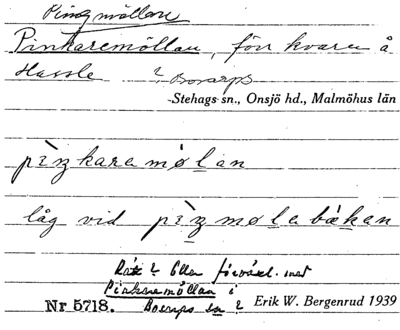 Pingmöllan
Pinkaremöllan, förr kvarn å
Hassle ? Bosarps
Stehags sn., Onsjö hd., Malmöhus län
pìŋkaramøḷan
låg vid pìŋmøḷabàkan
Rätt? Eller förväxl. med
Pinkaremöllan i
Nr 5718. Bosarps sn? Erik W. Bergenrud 1939